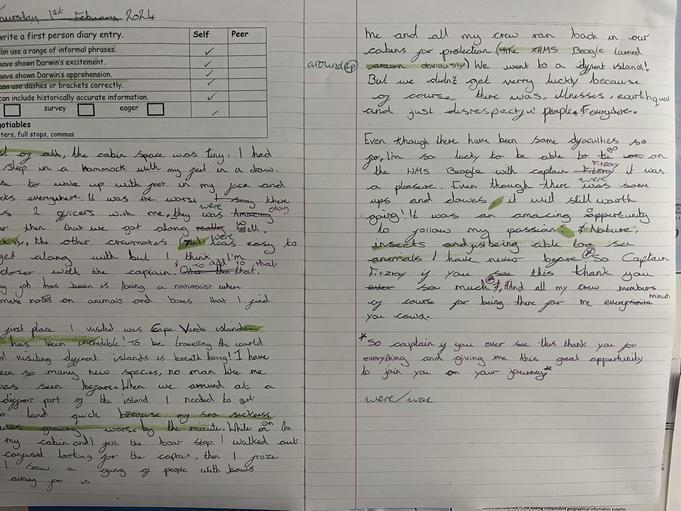 Thursday 1st February 2024
write a first person diary entry. Self Peer
can use a range of informal phrases. ✓
have shown Darwin's excitement. ✓
have shown Darwin's apprehension. ✓
can use dashes or brackets correctly. ✓
can include historically accurate information. ✓
survey eager
gotiables
ters, full stops, commas
of all, the cabin space was tiny. I had
sleep in a Hammock with my feet in a draw.
to wake up with feet in my face and
everywhere. It was the worse. there
2 officers with me, they were okay
then that we got along well.
the other crewmates were easy to
get along with but I think I'm
closer with the captain. that,
job has been is being a naturalist where
make notes on animals and bones that I find.
first place I visited was Cape Verde islands
has been incredible! To be travelling the world
visiting different islands is breath taking! I have
seen so many new species, no man like me
has seen before. When we arrived at a
different part of the island I needed to get
land quick because my sea sickness
was growing worse by the minute. While in the
my cabin and I felt the boat stop. I walked out
confused looking for the captain, then I froze
I saw a gang of people with bows
aiming for us
Me and all my crew ran back in our
cabins for protection (The HMS Beagle turned
around sp
obviously) We went to a different island!
But we didn't get very lucky because
of course there was, illnesses, earthquakes
and just disrespectful people everywhere.
Even though there have been some dyfficulties so
far, I'm so lucky to be able to go on
the HMS Beagle with captain Fitzroy it was
a pleasure. Even though there were some
ups and downs, it will still worth
going! It was an amazing opportunity
to follow my passion of Nature,
insects and just being able too see
animals I have never before. So Captain
Fitzroy if you this thank you
so much, And all my crew members
of course for being there for me every minute
you could.
*So captain if you ever see this thank you for
everything and giving me this great opportunity
to join you on your journey*
were/was